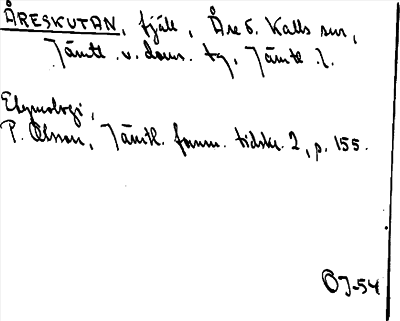 ÅRESKUTAN, fjäll, Åre o. Kalls snr,
Jämtl. v. doms. tg, Jämtl. l.
Etymologi,
P. Olsson, Jämtl. fornm. tidskr. 2, p. 155.
OJ-54